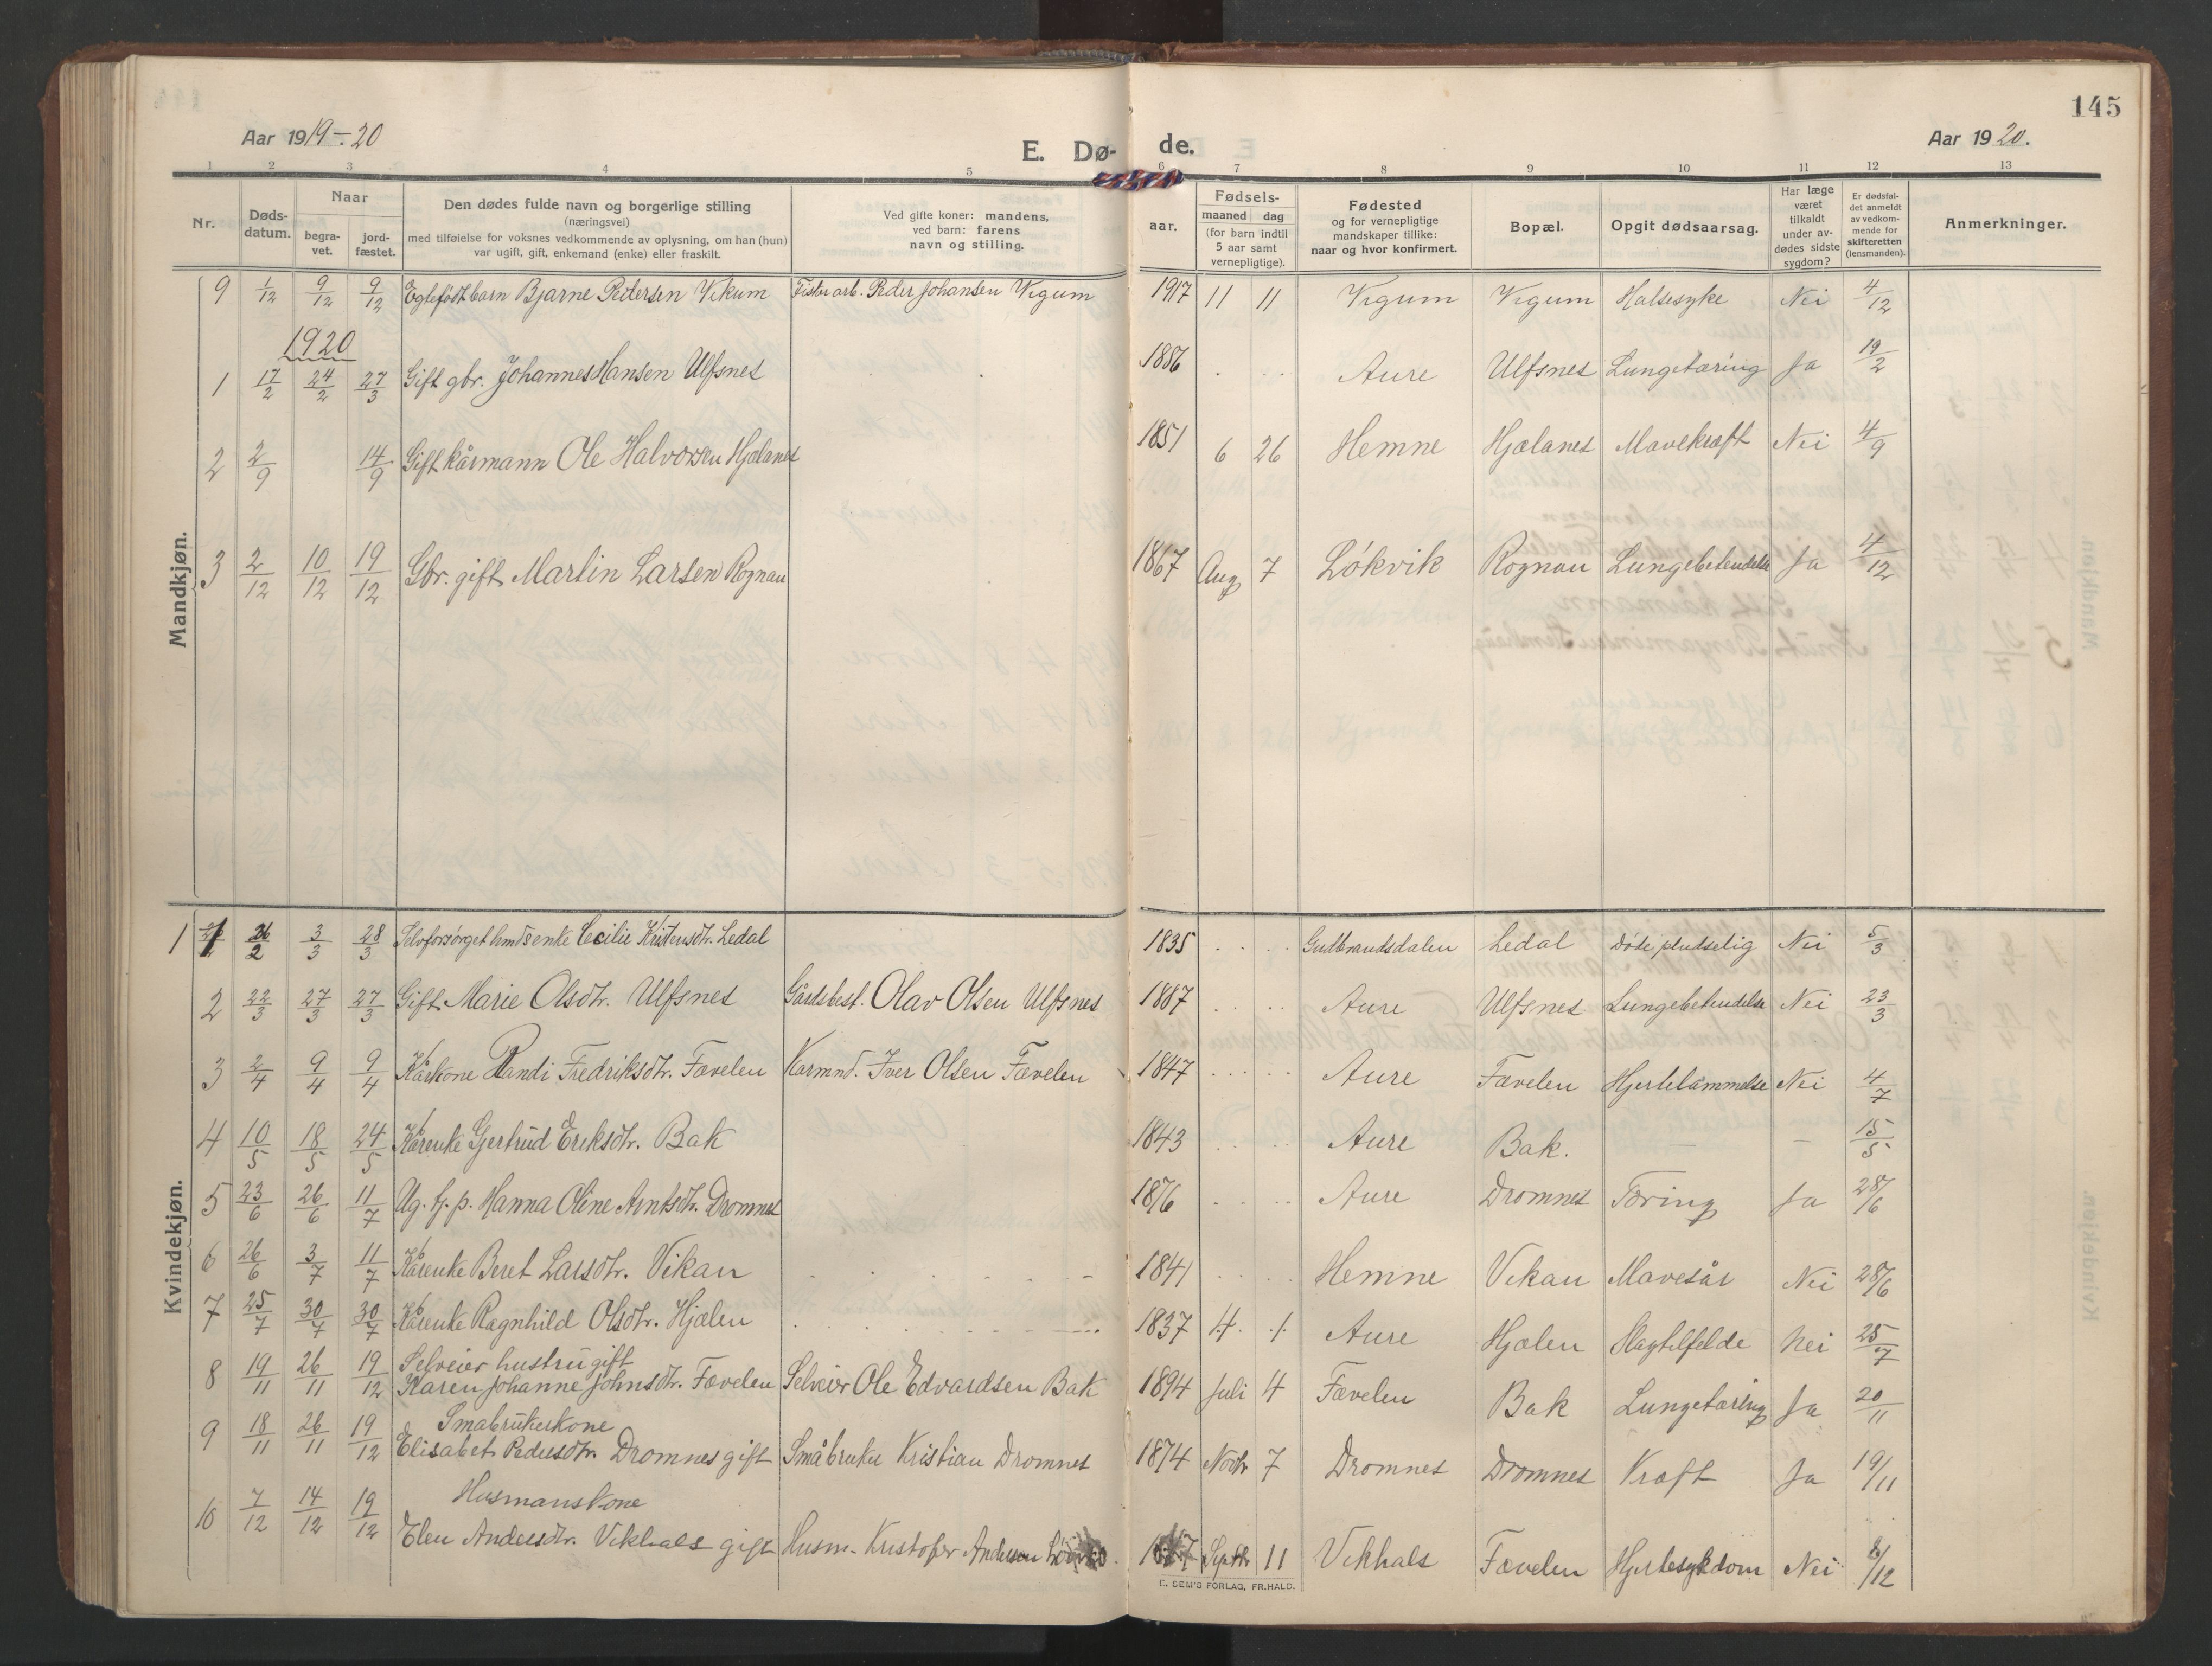 145
Aar 1919-20
E. Dø- de.
Aar 1920.
1 2 3 4 5 6 7 8 9 10 11 12 13
Nr.
Døds-
datum.
Naar
begra-
vet.
jord-
fæstet.
Den dødes fulde navn og borgerlige stilling
(næringsvei)
med tilføielse for voksnes vedkommende av oplysning, om han (hun)
var ugift, gift, enkemand (enke) eller fraskilt.
Ved gifte koner: mandens,
ved barn: farens
navn og stilling.
aar.
Fødsels-
maaned dag
(for barn indtil
5 aar samt
vernepligtige).
Fødested
og for vernepligtige
mandskaper tillike:
naar og hvor konfirmert.
Bopæl.
Opgit dødsaarsag.
Har læge
været
tilkaldt
under av-
dødes sidste
sygdom?
Er dødsfal-
det anmeldt
av vedkom-
mende for
skifteretten
(lensmanden).
Anmerkninger.
Mandkjøn.
9 1/12 9/12 9/12 Egtefødt barn Bjarne Pedersen Vikum Fisker arb. Peder Johansen Vigum 1917 11 11 Vigum Vigum Halsesyke Nei 4/12
1920
1 17/2 24/2 27/3 Gift gbr. Johannes Hansen Ulfsnes 1886 Aure Ulfsnes Lungetæring Ja 19/2
2 2/9 14/9 Gift kårmann Ole Halvorsen Hjælanes 1851 6 26 Hemne Hjælanes Mavekræft Nei 4/9
3 2/12 10/12 19/12 Gbr. gift Martin Larsen Rognan 1867 Aug 7 Løkvik Rognan Lungebetendelse Ja 4/12
Kvindekjøn.
1 26/2 3/3 28/3 Selvforsørget enke Cecilie Kristensdtr. Ledal 1835 Gudbrandsdalen Ledal Døde pludselig Nei 5/3
2 22/3 27/3 27/3 Gift Marie Olsdtr. Ulfsnes Gårdsbest. Olav Olsen Ulfsnes 1887 Aure Ulfsnes Lungebetendelse Nei 23/3
3 2/4 9/4 9/4 Kårkone Randi Fredriksdtr. Fævelen Karmnd. Iver Olsen Fævelen 1847 Aure Fævelen Hjertelammelse Nei 4/7
4 10/5 18/5 24/5 Kårenke Gjertrud Eriksdtr. Bak 1843 Aure Bak. — — 15/5
5 23/6 26/6 11/7 Ug. f. p. Hanna Oline Arntsdtr. Dromnes 1876 Aure Dromnes Tæring Ja 28/6
6 26/6 3/7 11/7 Kårenke Beret Larsdtr. Vikan 1841 Hemne Vikan Mavesår Nei 28/6
7 25/7 30/7 30/7 Kårenke Ragnhild Olsdtr. Hjælen 1837 4. 1. Aure Hjælen Slagtilfelde Nei 25/7
8 19/11 26/11 19/12 Selveier hustru gift
Karen Johanne Johnsdtr. Fævelen Selveier Ole Edvardsen Bak 1894 Juli 4 Fævelen Bak Lungetæring Ja 20/11
9 18/11 26/11 19/12 Småbrukerkone
Elisabet Pedersdtr. Dromnes gift Småbruker Kristian Dromnes 1874 Novbr 7 Dromnes Dromnes Kræft Ja 19/11
10 7/12 14/12 19/12 Husmanskone
Elen Andersdtr. Vikhals gift Husm. Kristofer Andersen Septbr 11 Vikhals Fævelen Hjertesykdom Nei 8/12
E. SEM'S FORLAG, FR.HALD.